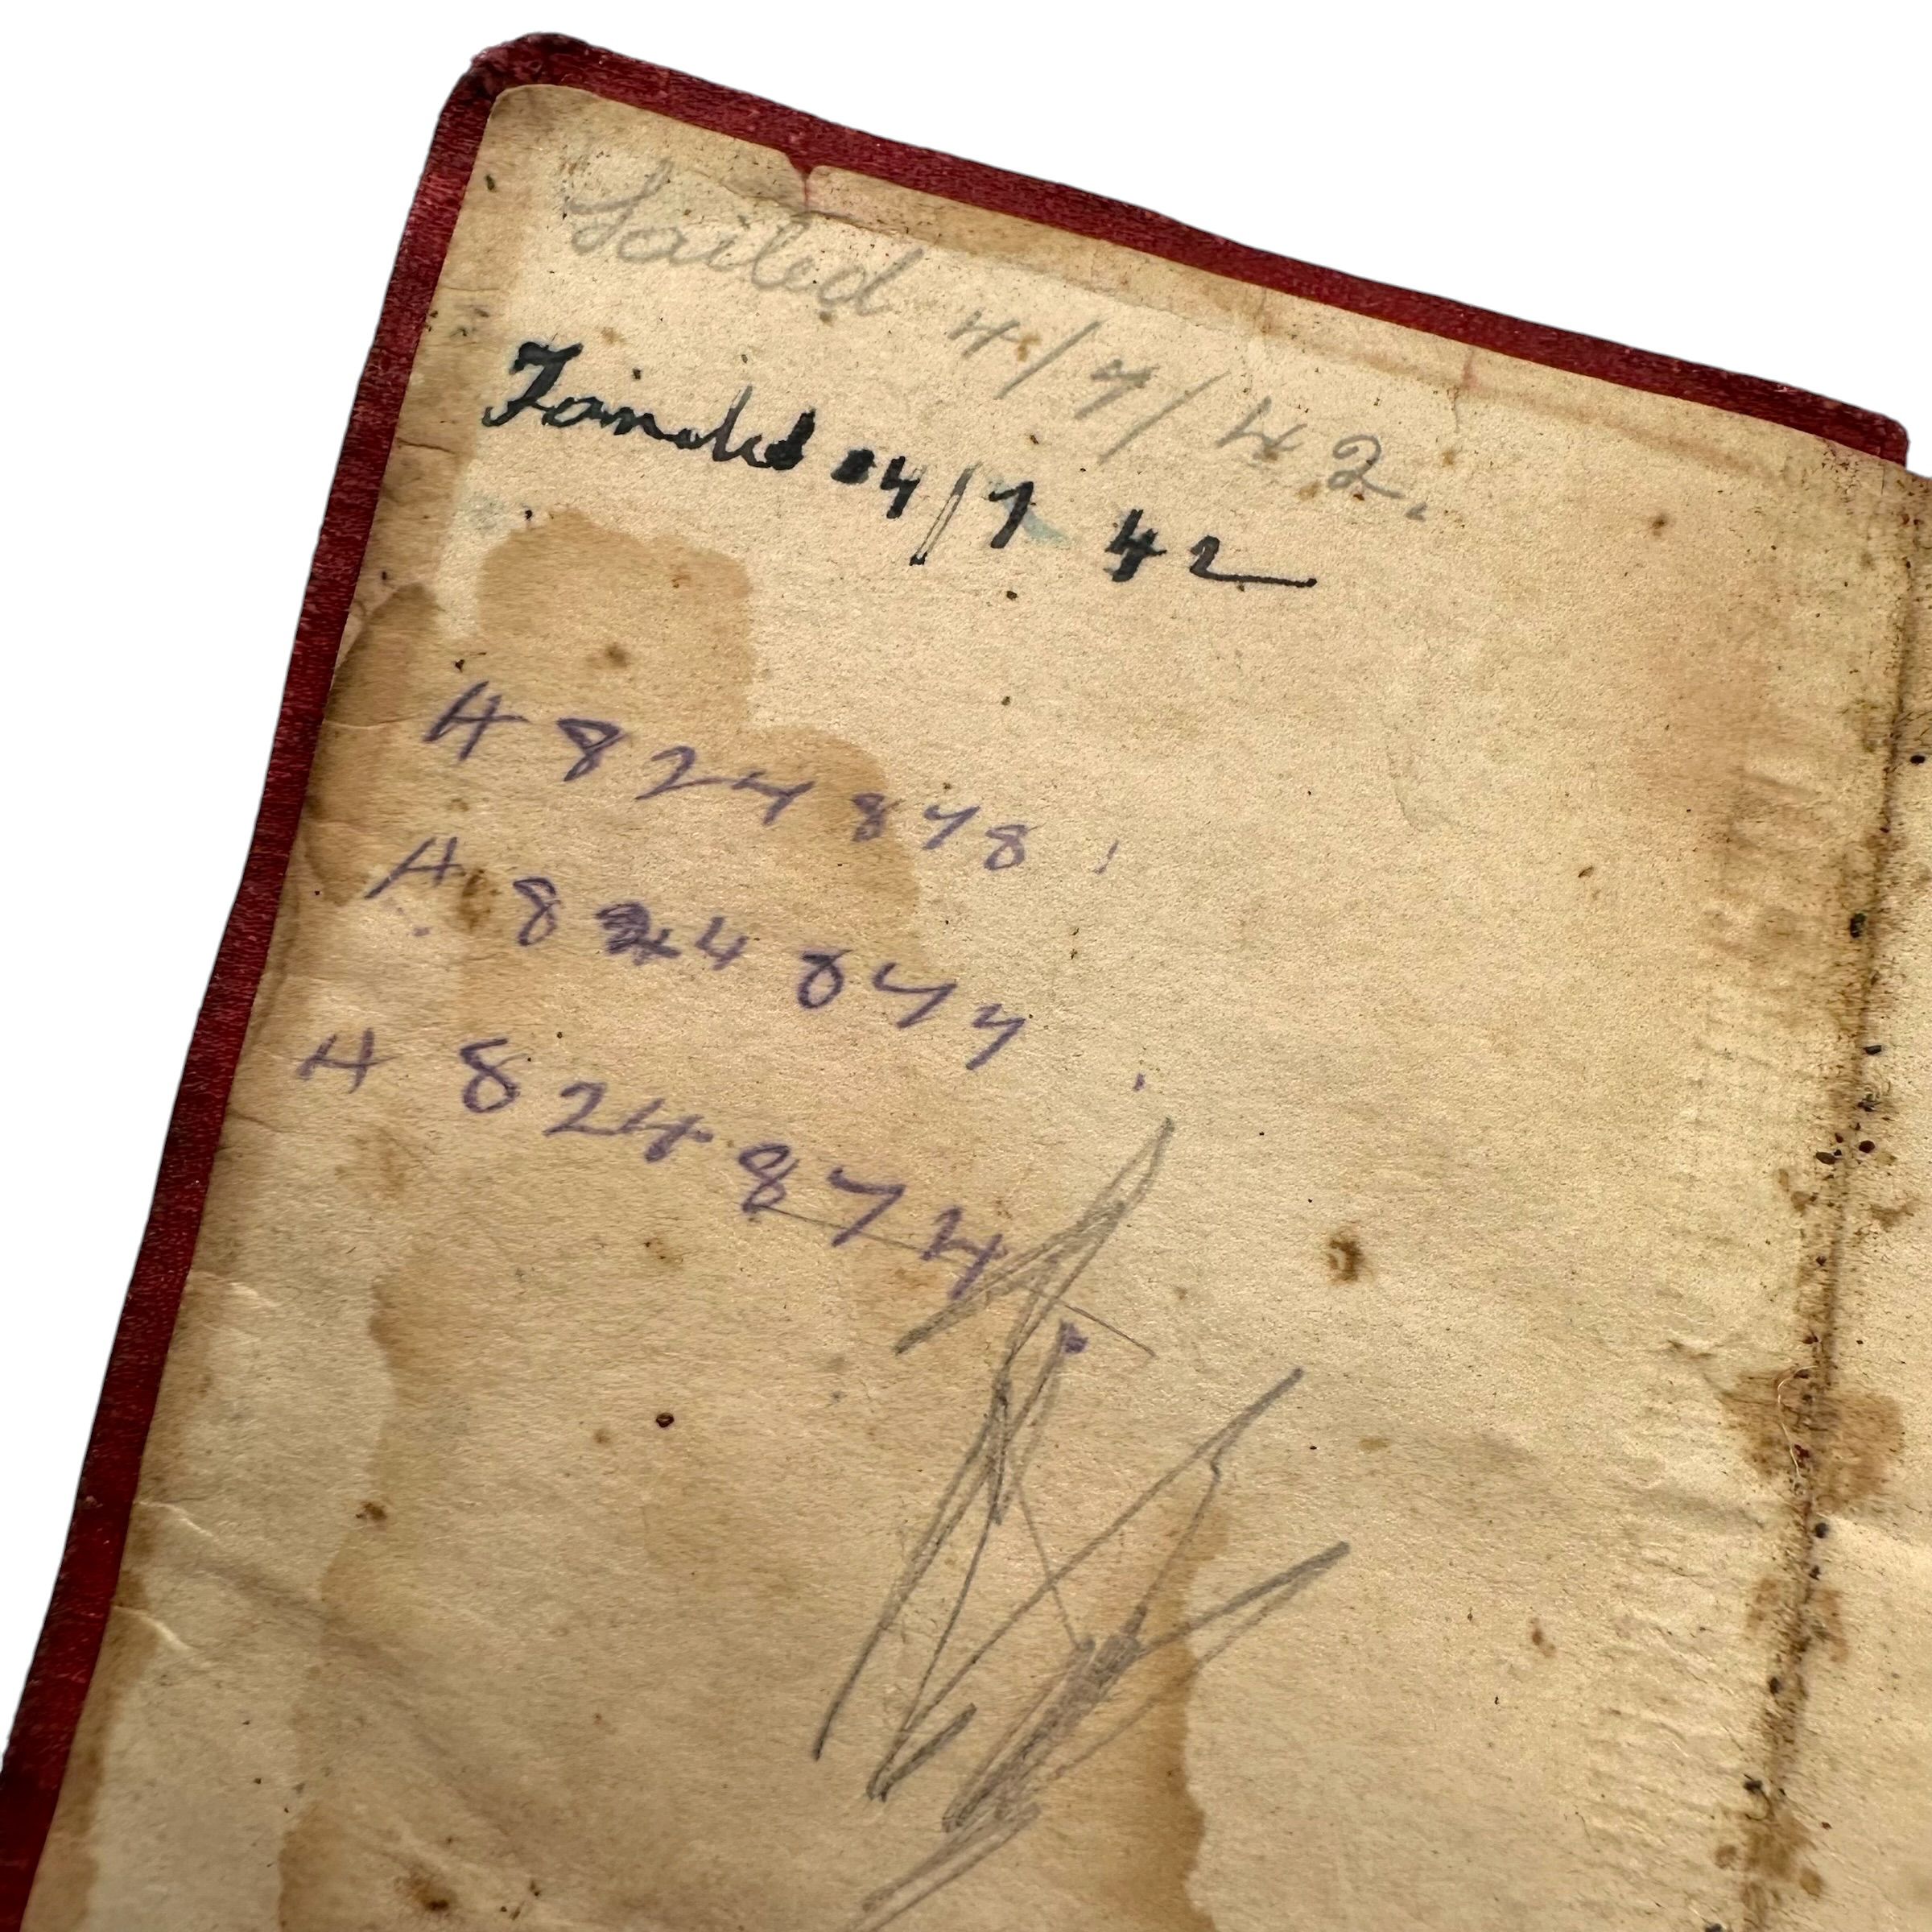 Sailed 4/7/42.
Landed 4/7 42
A 824 878
A 824 877
A 824 874